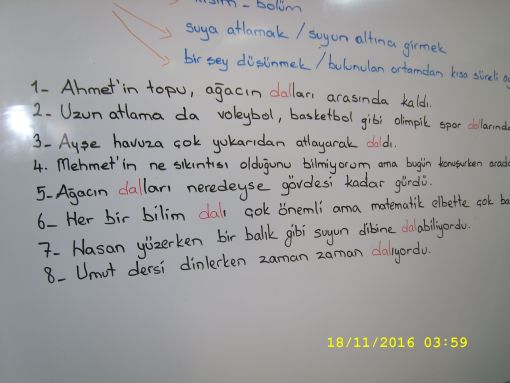 kısım - bölüm
suya atlamak / suyun altına girmek
bir şey düşünmek / bulunulan ortamdan kısa süreli
1- Ahmet'in topu, ağacın dalları arasında kaldı.
2- Uzun atlama da voleybol, basketbol gibi olimpik spor dallarında
3- Ayşe havuza çok yukarıdan atlayarak daldı.
4. Mehmet'in ne sıkıntısı olduğunu bilmiyorum ama bugün konuşurken
5-Ağacın dalları neredeyse gövdesi kadar gürdü.
6- Her bir bilim dalı çok önemli ama matematik elbette çok
7- Hasan yüzerken bir balık gibi suyun dibine dalabiliyordu.
8- Umut dersi dinlerken zaman zaman dalıyordu.
18/11/2016 03:59